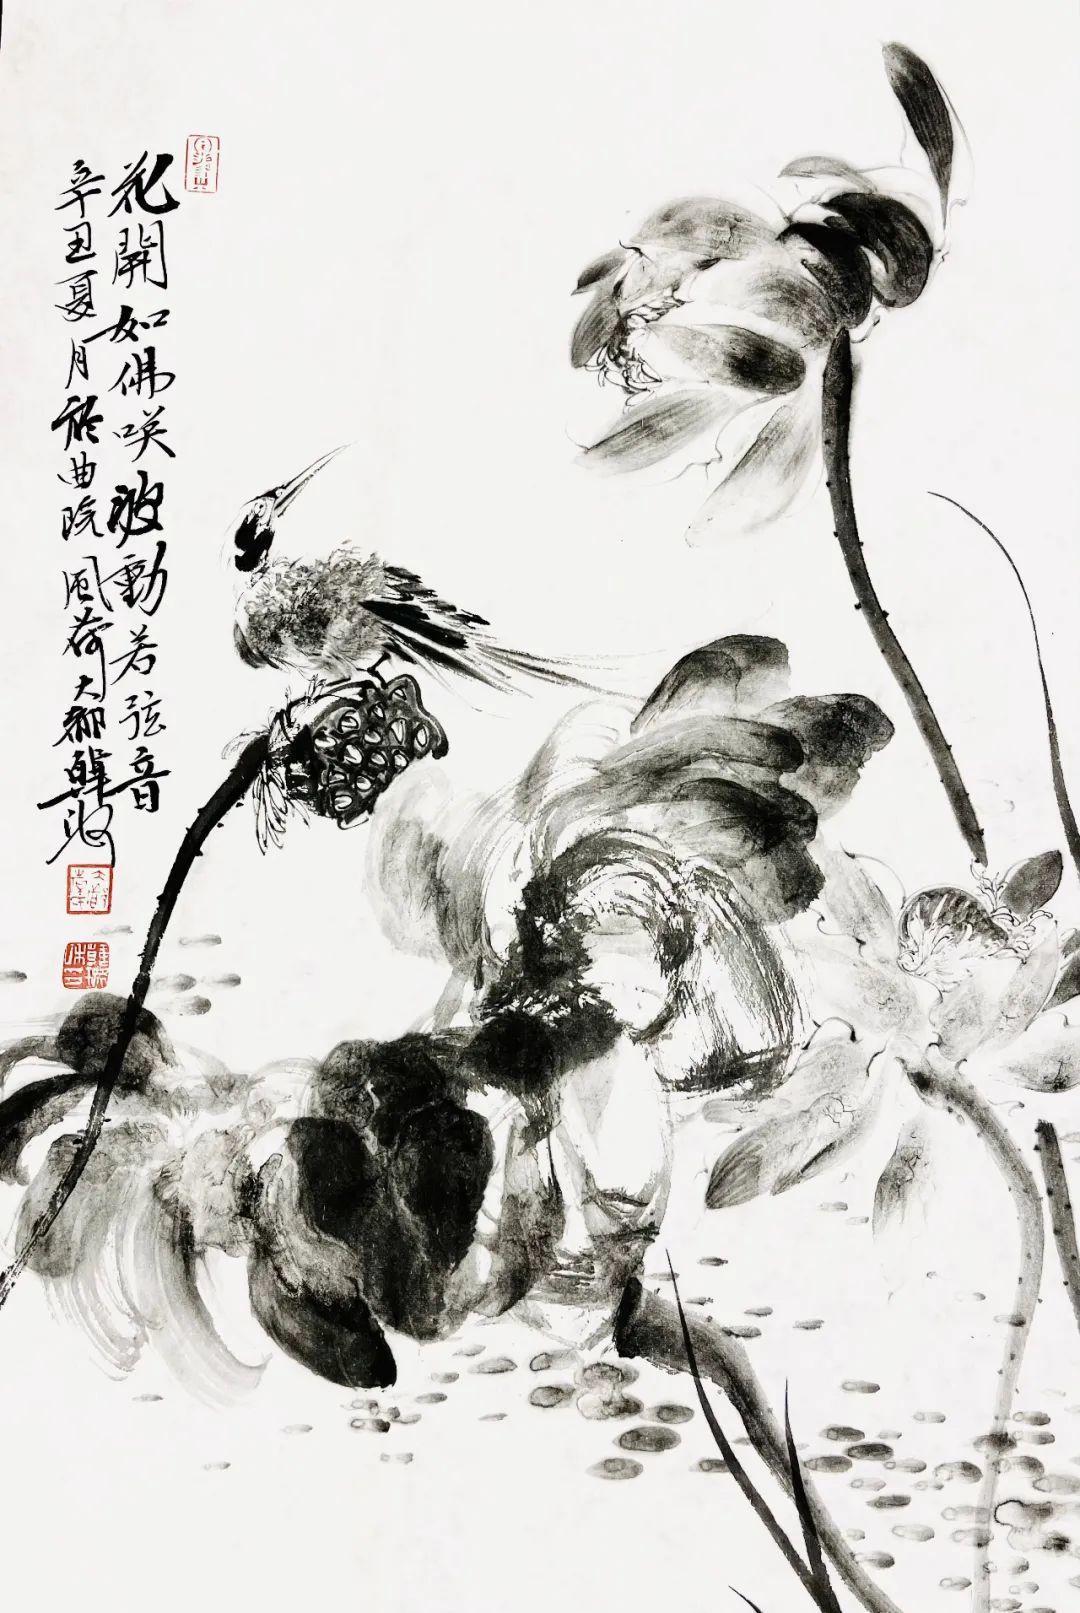 花開如佛咲波動若弦音
辛丑夏月於曲院風荷大都韓